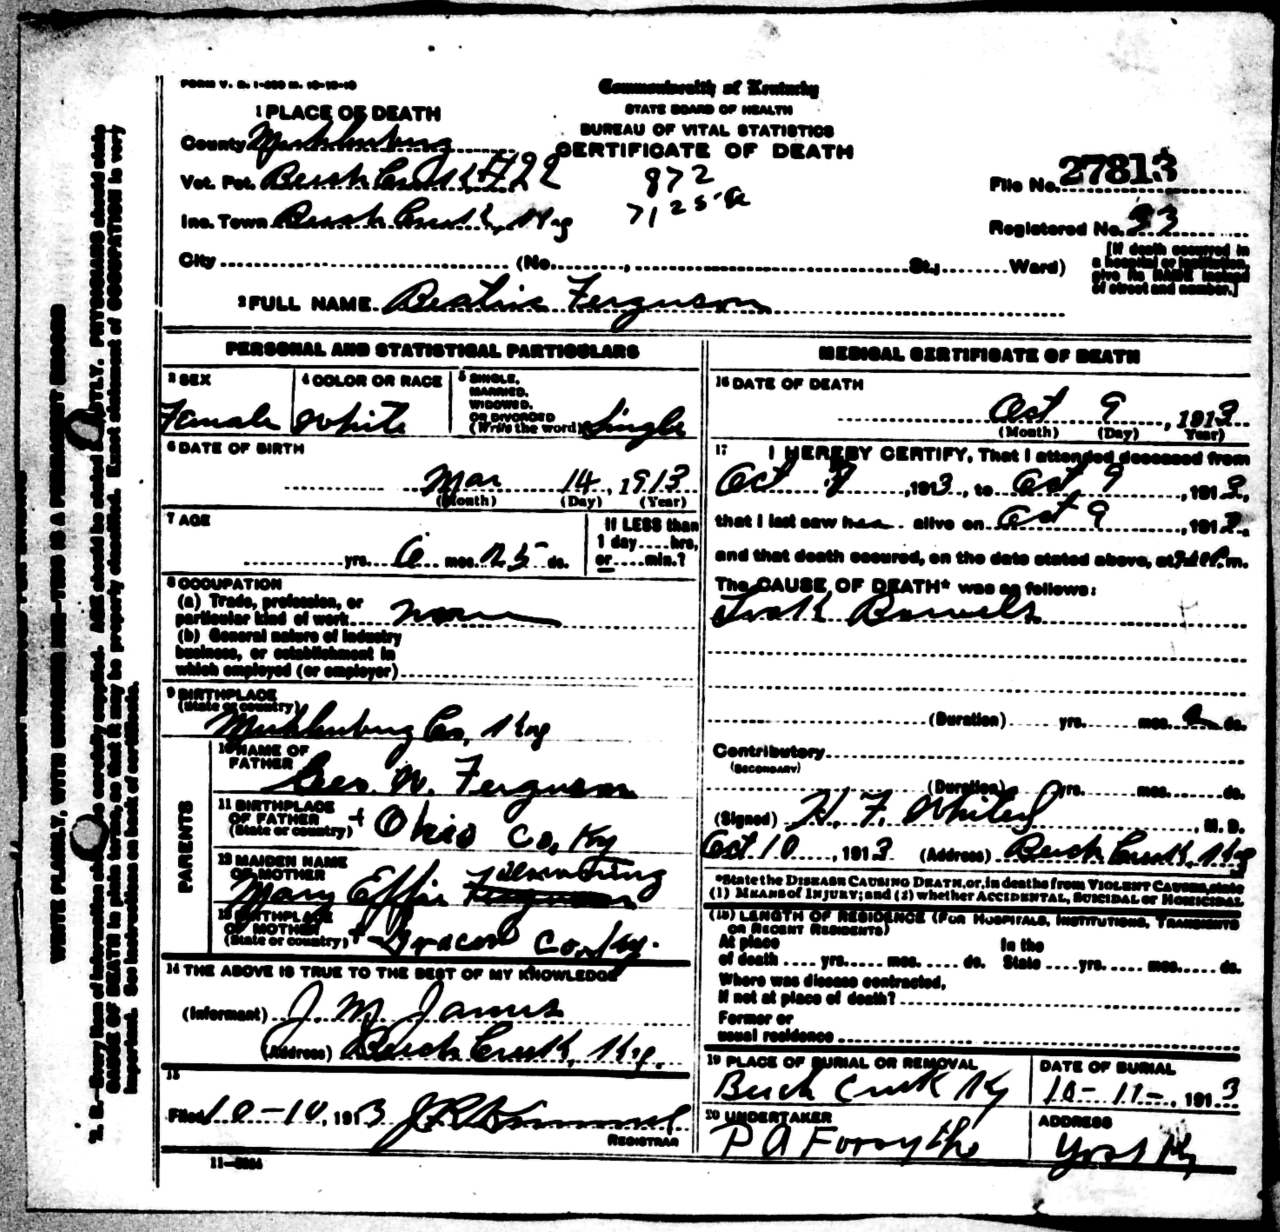 FORM V. S. 1-
Commonwealth of Kentucky
STATE BOARD OF HEALTH
BUREAU OF VITAL STATISTICS
CERTIFICATE OF DEATH
1 PLACE OF DEATH
County Muhlenburg
Vot. Pct. Beech Creek #22
Inc. Town Beech Creek, Ky
City (No. , St.; Ward)
872
7125
File No. 27813
Registered No. 33
[If death occurred in
a hospital or institution,
give its NAME instead
of street and number.]
2 FULL NAME Beatrice Ferguson
PERSONAL AND STATISTICAL PARTICULARS
3 SEX
Female
4 COLOR OR RACE
White
5 SINGLE,
MARRIED,
WIDOWED,
OR DIVORCED
(Write the word) Single
6 DATE OF BIRTH
Mar 14, 1913
(Month) (Day) (Year)
7 AGE
yrs. 6 mos. 25 ds.
If LESS than
1 day hrs.
or min.?
8 OCCUPATION
(a) Trade, profession, or
particular kind of work none
(b) General nature of industry
business, or establishment in
which employed (or employer)
9 BIRTHPLACE
(State or country)
Muhlenburg Co, Ky
PARENTS
10 NAME OF
FATHER
Geo. W. Ferguson
11 BIRTHPLACE
OF FATHER
(State or country) + Ohio Co, Ky
12 MAIDEN NAME
OF MOTHER
Mary Effie
13 BIRTHPLACE
OF MOTHER
(State or country) + Co, Ky.
14 THE ABOVE IS TRUE TO THE BEST OF MY KNOWLEDGE
(Informant) J. M. James
(Address) Beech Creek, Ky.
15
Filed 10-10, 1913
REGISTRAR
MEDICAL CERTIFICATE OF DEATH
16 DATE OF DEATH
Oct 9, 1913
(Month) (Day) Year)
17 I HEREBY CERTIFY, That I attended deceased from
Oct 1913, to Oct 9, 1913,
that I last saw her alive on Oct 9, 1913,
and that death occured, on the date stated above, at m.
The CAUSE OF DEATH* was as follows:
Bowels
(Duration) yrs. mos. ds.
Contributory
(SECONDARY)
(Duration) yrs. mos. ds.
(Signed) H. F. , M. D.
Oct 10, 1913 (Address) Beech Creek, Ky
*State the DISEASE CAUSING DEATH, or, in deaths from VIOLENT CAUSES, state
(1) MEANS of INJURY; and (2) whether ACCIDENTAL, SUICIDAL or HOMICIDAL
(18) LENGTH OF RESIDENCE (FOR HOSPITALS, INSTITUTIONS, TRANSIENTS
OR RECENT RESIDENTS)
At place
of death yrs. mos. ds.
In the
State yrs. mos. ds.
Where was disease contracted,
if not at place of death?
Former or
usual residence
19 PLACE OF BURIAL OR REMOVAL
Beech Creek Ky
DATE OF BURIAL
10-11-, 1913
20 UNDERTAKER
P A Forsythe
ADDRESS
Yost Ky
WRITE PLAINLY, WITH UNFADING INK—THIS IS A PERMANENT RECORD
N. B.—Every item of information should be carefully supplied. AGE should be stated EXACTLY. PHYSICIANS should state
CAUSE OF DEATH in plain terms, so that it may be properly classified. Exact statement of OCCUPATION is very
important. See instructions on back of certificate.